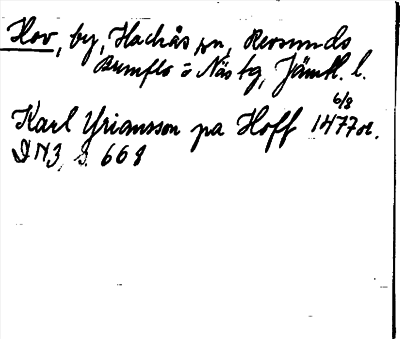 Hov, by, Hackås sn, Revsunds
Brunflo o Näs tg, Jämtl. l.
6/8
Karl Ÿriansson pa Hoff 1477 or.
DN3, S. 668